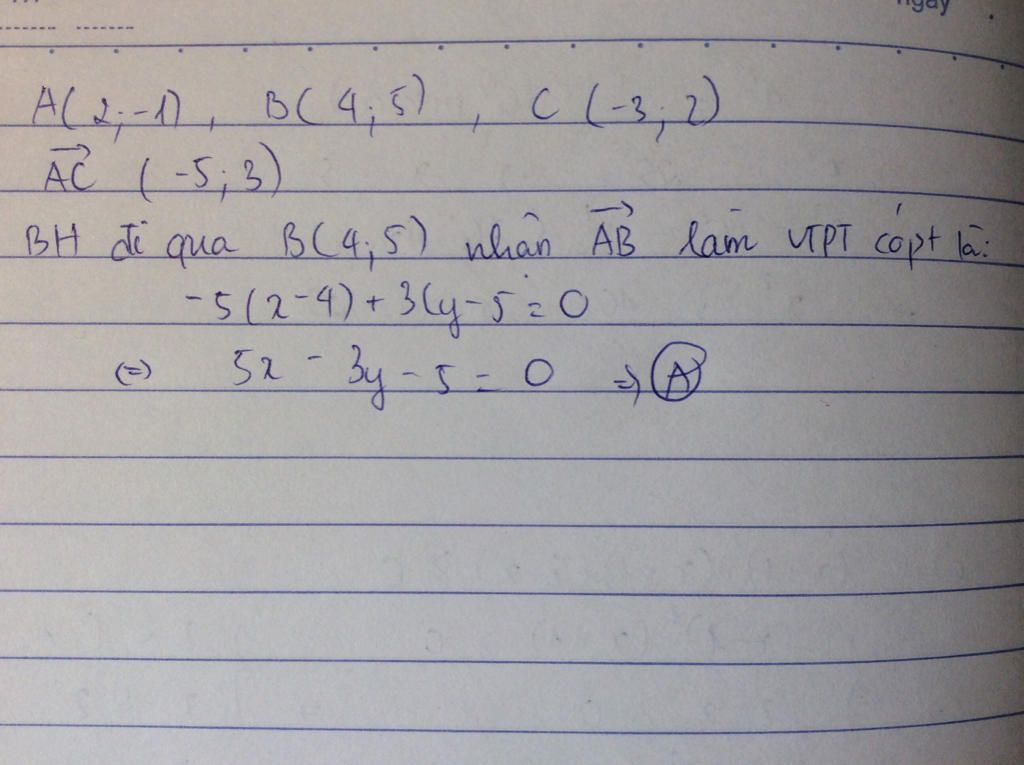 ngày
A(2;-1), B(4;5), C(-3;2)
$\overrightarrow{AC}$ (-5;3)
BH đi qua B(4;5) nhân $\overrightarrow{AB}$ làm VTPT có pt là:
-5(x-4)+3(y-5=0
(=) 5x-3y-5=0 => A